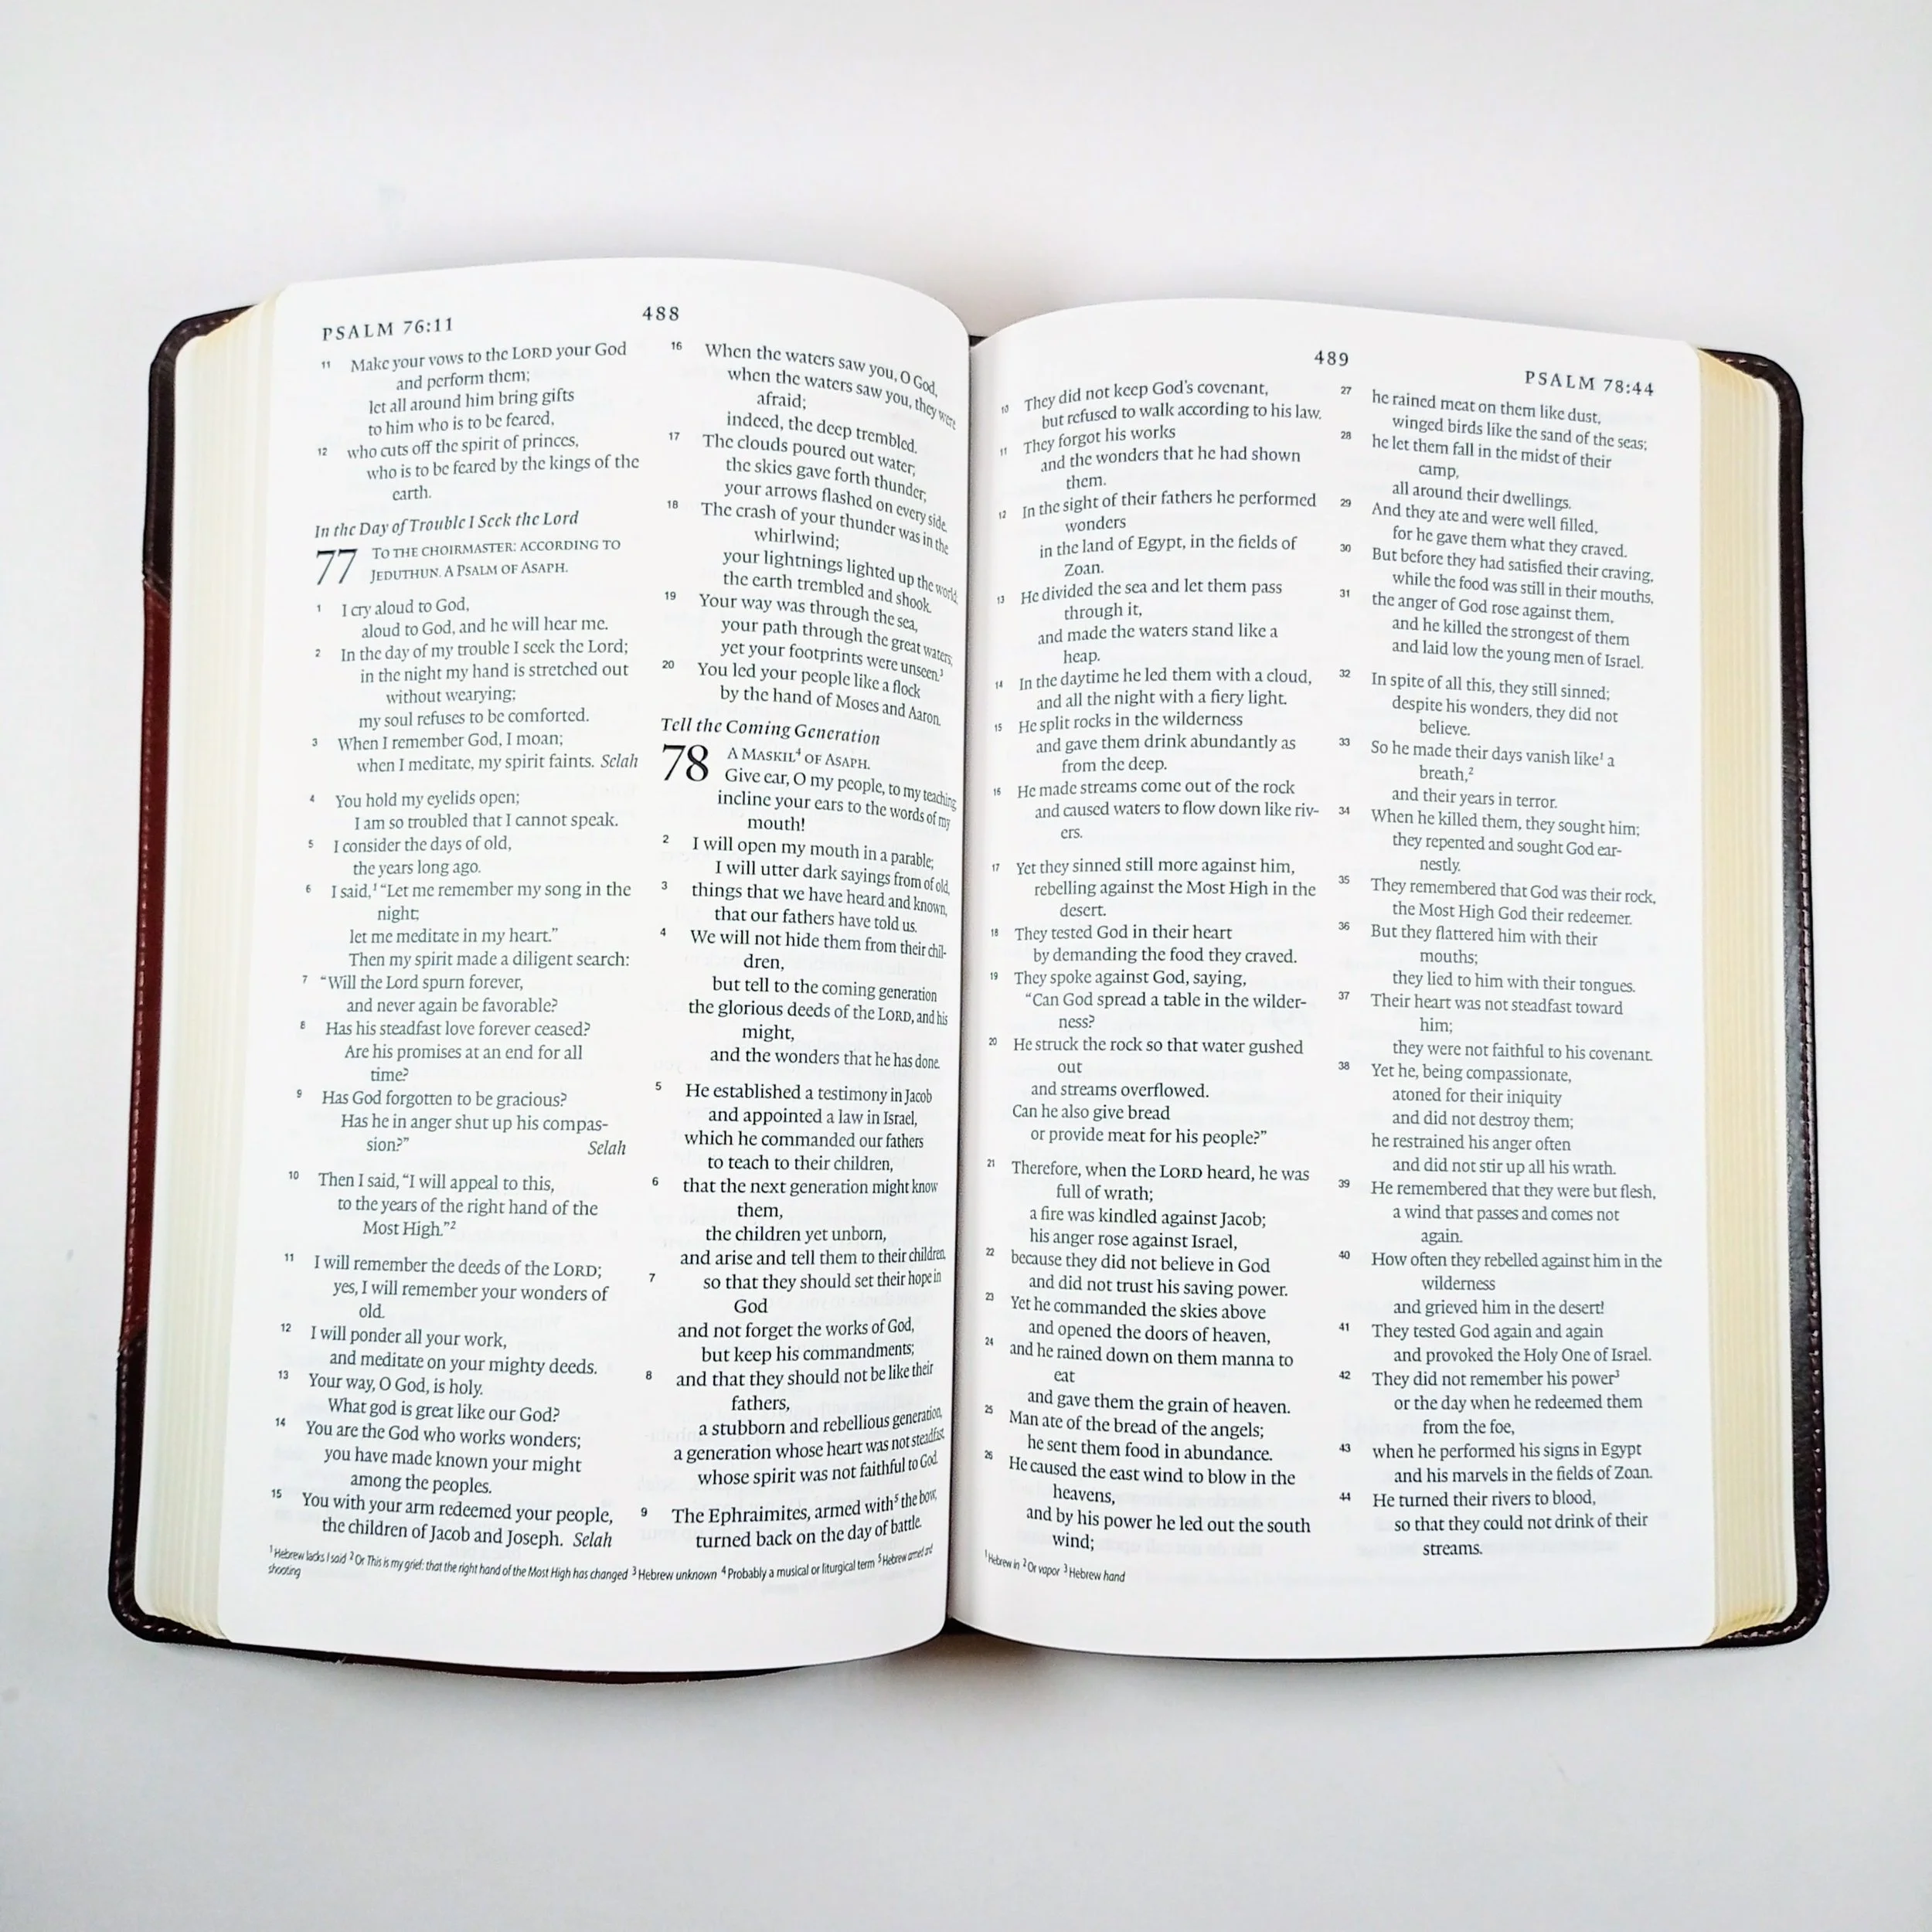 PSALM 76:11
488
11 Make your vows to the LORD your God
and perform them;
let all around him bring gifts
to him who is to be feared,
12 who cuts off the spirit of princes,
who is to be feared by the kings of the
earth.
In the Day of Trouble I Seek the Lord
77 TO THE CHOIRMASTER: ACCORDING TO
JEDUTHUN. A PSALM OF ASAPH.
1 I cry aloud to God,
aloud to God, and he will hear me.
2 In the day of my trouble I seek the Lord;
in the night my hand is stretched out
without wearying;
my soul refuses to be comforted.
3 When I remember God, I moan;
when I meditate, my spirit faints. Selah
4 You hold my eyelids open;
I am so troubled that I cannot speak.
5 I consider the days of old,
the years long ago.
6 I said,1 “Let me remember my song in the
night;
let me meditate in my heart.”
Then my spirit made a diligent search:
7 “Will the Lord spurn forever,
and never again be favorable?
8 Has his steadfast love forever ceased?
Are his promises at an end for all
time?
9 Has God forgotten to be gracious?
Has he in anger shut up his compas-
sion?” Selah
10 Then I said, “I will appeal to this,
to the years of the right hand of the
Most High.”2
11 I will remember the deeds of the LORD;
yes, I will remember your wonders of
old.
12 I will ponder all your work,
and meditate on your mighty deeds.
13 Your way, O God, is holy.
What god is great like our God?
14 You are the God who works wonders;
you have made known your might
among the peoples.
15 You with your arm redeemed your people,
the children of Jacob and Joseph. Selah
16 When the waters saw you, O God,
when the waters saw you, they were
afraid;
indeed, the deep trembled.
17 The clouds poured out water;
the skies gave forth thunder;
your arrows flashed on every side.
18 The crash of your thunder was in the
whirlwind;
your lightnings lighted up the world;
the earth trembled and shook.
19 Your way was through the sea,
your path through the great waters;
yet your footprints were unseen.3
20 You led your people like a flock
by the hand of Moses and Aaron.
Tell the Coming Generation
78 A MASKIL4 OF ASAPH.
Give ear, O my people, to my teaching;
incline your ears to the words of my
mouth!
2 I will open my mouth in a parable;
I will utter dark sayings from of old,
3 things that we have heard and known,
that our fathers have told us.
4 We will not hide them from their chil-
dren,
but tell to the coming generation
the glorious deeds of the LORD, and his
might,
and the wonders that he has done.
5 He established a testimony in Jacob
and appointed a law in Israel,
which he commanded our fathers
to teach to their children,
6 that the next generation might know
them,
the children yet unborn,
and arise and tell them to their children,
7 so that they should set their hope in
God
and not forget the works of God,
but keep his commandments;
8 and that they should not be like their
fathers,
a stubborn and rebellious generation,
a generation whose heart was not steadfast,
whose spirit was not faithful to God.
9 The Ephraimites, armed with5 the bow,
turned back on the day of battle.
1 Hebrew lacks I said 2 Or This is my grief: that the right hand of the Most High has changed 3 Hebrew unknown 4 Probably a musical or liturgical term 5 Hebrew armed and
shooting
489
PSALM 78:44
10 They did not keep God's covenant,
but refused to walk according to his law.
11 They forgot his works
and the wonders that he had shown
them.
12 In the sight of their fathers he performed
wonders
in the land of Egypt, in the fields of
Zoan.
13 He divided the sea and let them pass
through it,
and made the waters stand like a
heap.
14 In the daytime he led them with a cloud,
and all the night with a fiery light.
15 He split rocks in the wilderness
and gave them drink abundantly as
from the deep.
16 He made streams come out of the rock
and caused waters to flow down like riv-
ers.
17 Yet they sinned still more against him,
rebelling against the Most High in the
desert.
18 They tested God in their heart
by demanding the food they craved.
19 They spoke against God, saying,
“Can God spread a table in the wilder-
ness?
20 He struck the rock so that water gushed
out
and streams overflowed.
Can he also give bread
or provide meat for his people?”
21 Therefore, when the LORD heard, he was
full of wrath;
a fire was kindled against Jacob;
his anger rose against Israel,
22 because they did not believe in God
and did not trust his saving power.
23 Yet he commanded the skies above
and opened the doors of heaven,
24 and he rained down on them manna to
eat
and gave them the grain of heaven.
25 Man ate of the bread of the angels;
he sent them food in abundance.
26 He caused the east wind to blow in the
heavens,
and by his power he led out the south
wind;
27 he rained meat on them like dust,
winged birds like the sand of the seas;
28 he let them fall in the midst of their
camp,
all around their dwellings.
29 And they ate and were well filled,
for he gave them what they craved.
30 But before they had satisfied their craving,
while the food was still in their mouths,
31 the anger of God rose against them,
and he killed the strongest of them
and laid low the young men of Israel.
32 In spite of all this, they still sinned;
despite his wonders, they did not
believe.
33 So he made their days vanish like1 a
breath,2
and their years in terror.
34 When he killed them, they sought him;
they repented and sought God ear-
nestly.
35 They remembered that God was their rock,
the Most High God their redeemer.
36 But they flattered him with their
mouths;
they lied to him with their tongues.
37 Their heart was not steadfast toward
him;
they were not faithful to his covenant.
38 Yet he, being compassionate,
atoned for their iniquity
and did not destroy them;
he restrained his anger often
and did not stir up all his wrath.
39 He remembered that they were but flesh,
a wind that passes and comes not
again.
40 How often they rebelled against him in the
wilderness
and grieved him in the desert!
41 They tested God again and again
and provoked the Holy One of Israel.
42 They did not remember his power3
or the day when he redeemed them
from the foe,
43 when he performed his signs in Egypt
and his marvels in the fields of Zoan.
44 He turned their rivers to blood,
so that they could not drink of their
streams.
1 Hebrew in 2 Or vapor 3 Hebrew hand